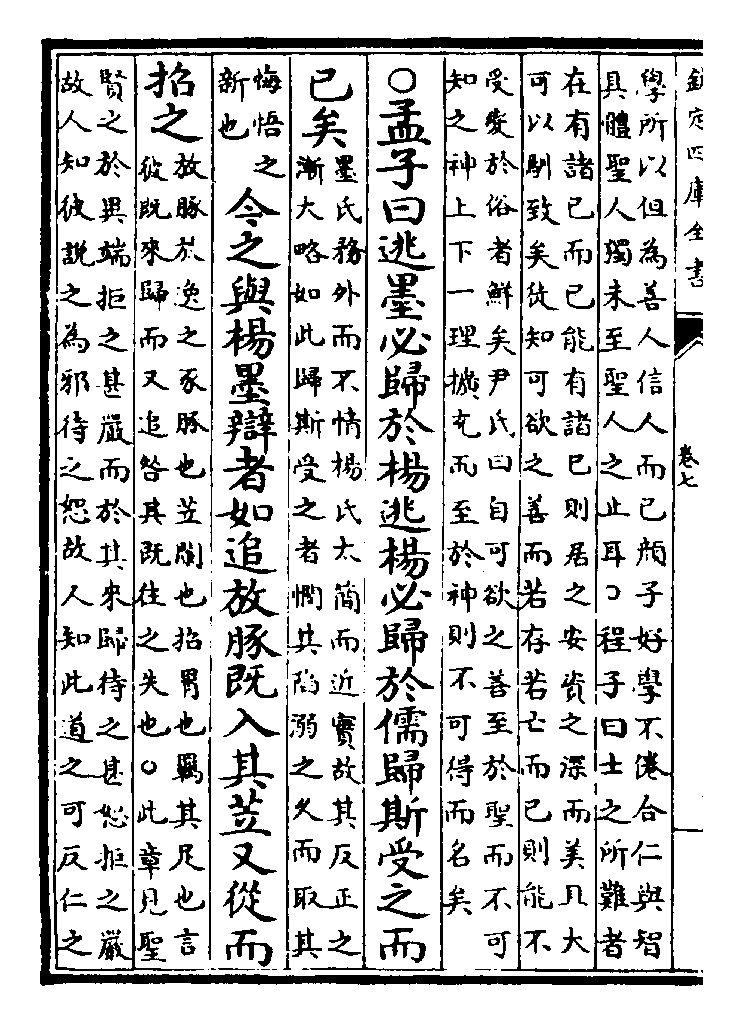 欽定四庫全書
卷七
學所以但為善人信人而已顔子好學不倦合仁與智
具體聖人獨未至聖人之止耳○程子曰士之所難者
在有諸已而已能有諸已則居之安資之深而美且大
可以馴致矣徒知可欲之善而若存若亡而已則能不
受變於俗者鮮矣尹氏曰自可欲之善至於聖而不可
知之神上下一理擴充而至於神則不可得而名矣
○孟子曰逃墨必歸於楊逃楊必歸於儒歸斯受之而
已矣
墨氏務外而不情楊氏太簡而近實故其反正之
漸大略如此歸斯受之者憫其陷溺之久而取其
悔悟之
新也
今之與楊墨辯者如追放豚既入其苙又從而
招之
放豚放逸之豕豚也苙闌也招罥也羈其足也言
彼既來歸而又追咎其既往之失也○此章見聖
賢之於異端拒之甚嚴而於其來歸待之甚恕拒之嚴
故人知彼說之為邪待之恕故人知此道之可反仁之